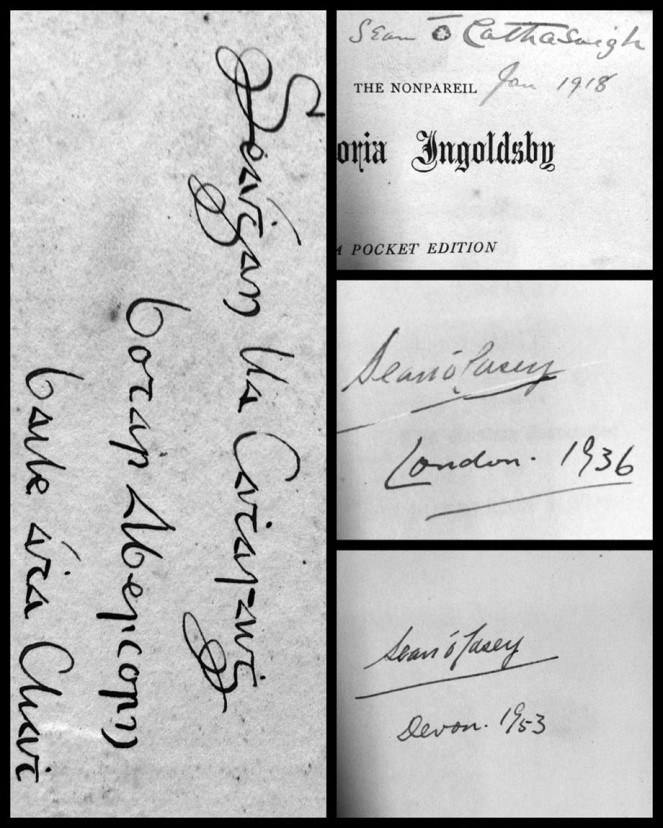 Seaġan Ua Caṫasaiġ
bóṫar Abercorn
baile áṫa Cliaṫ
Sean Ó Cathasaigh
THE NONPAREIL Jan 1918
oria Ingoldsby
A POCKET EDITION
Sean O'Casey
London. 1936
Sean O'Casey
Devon. 1953